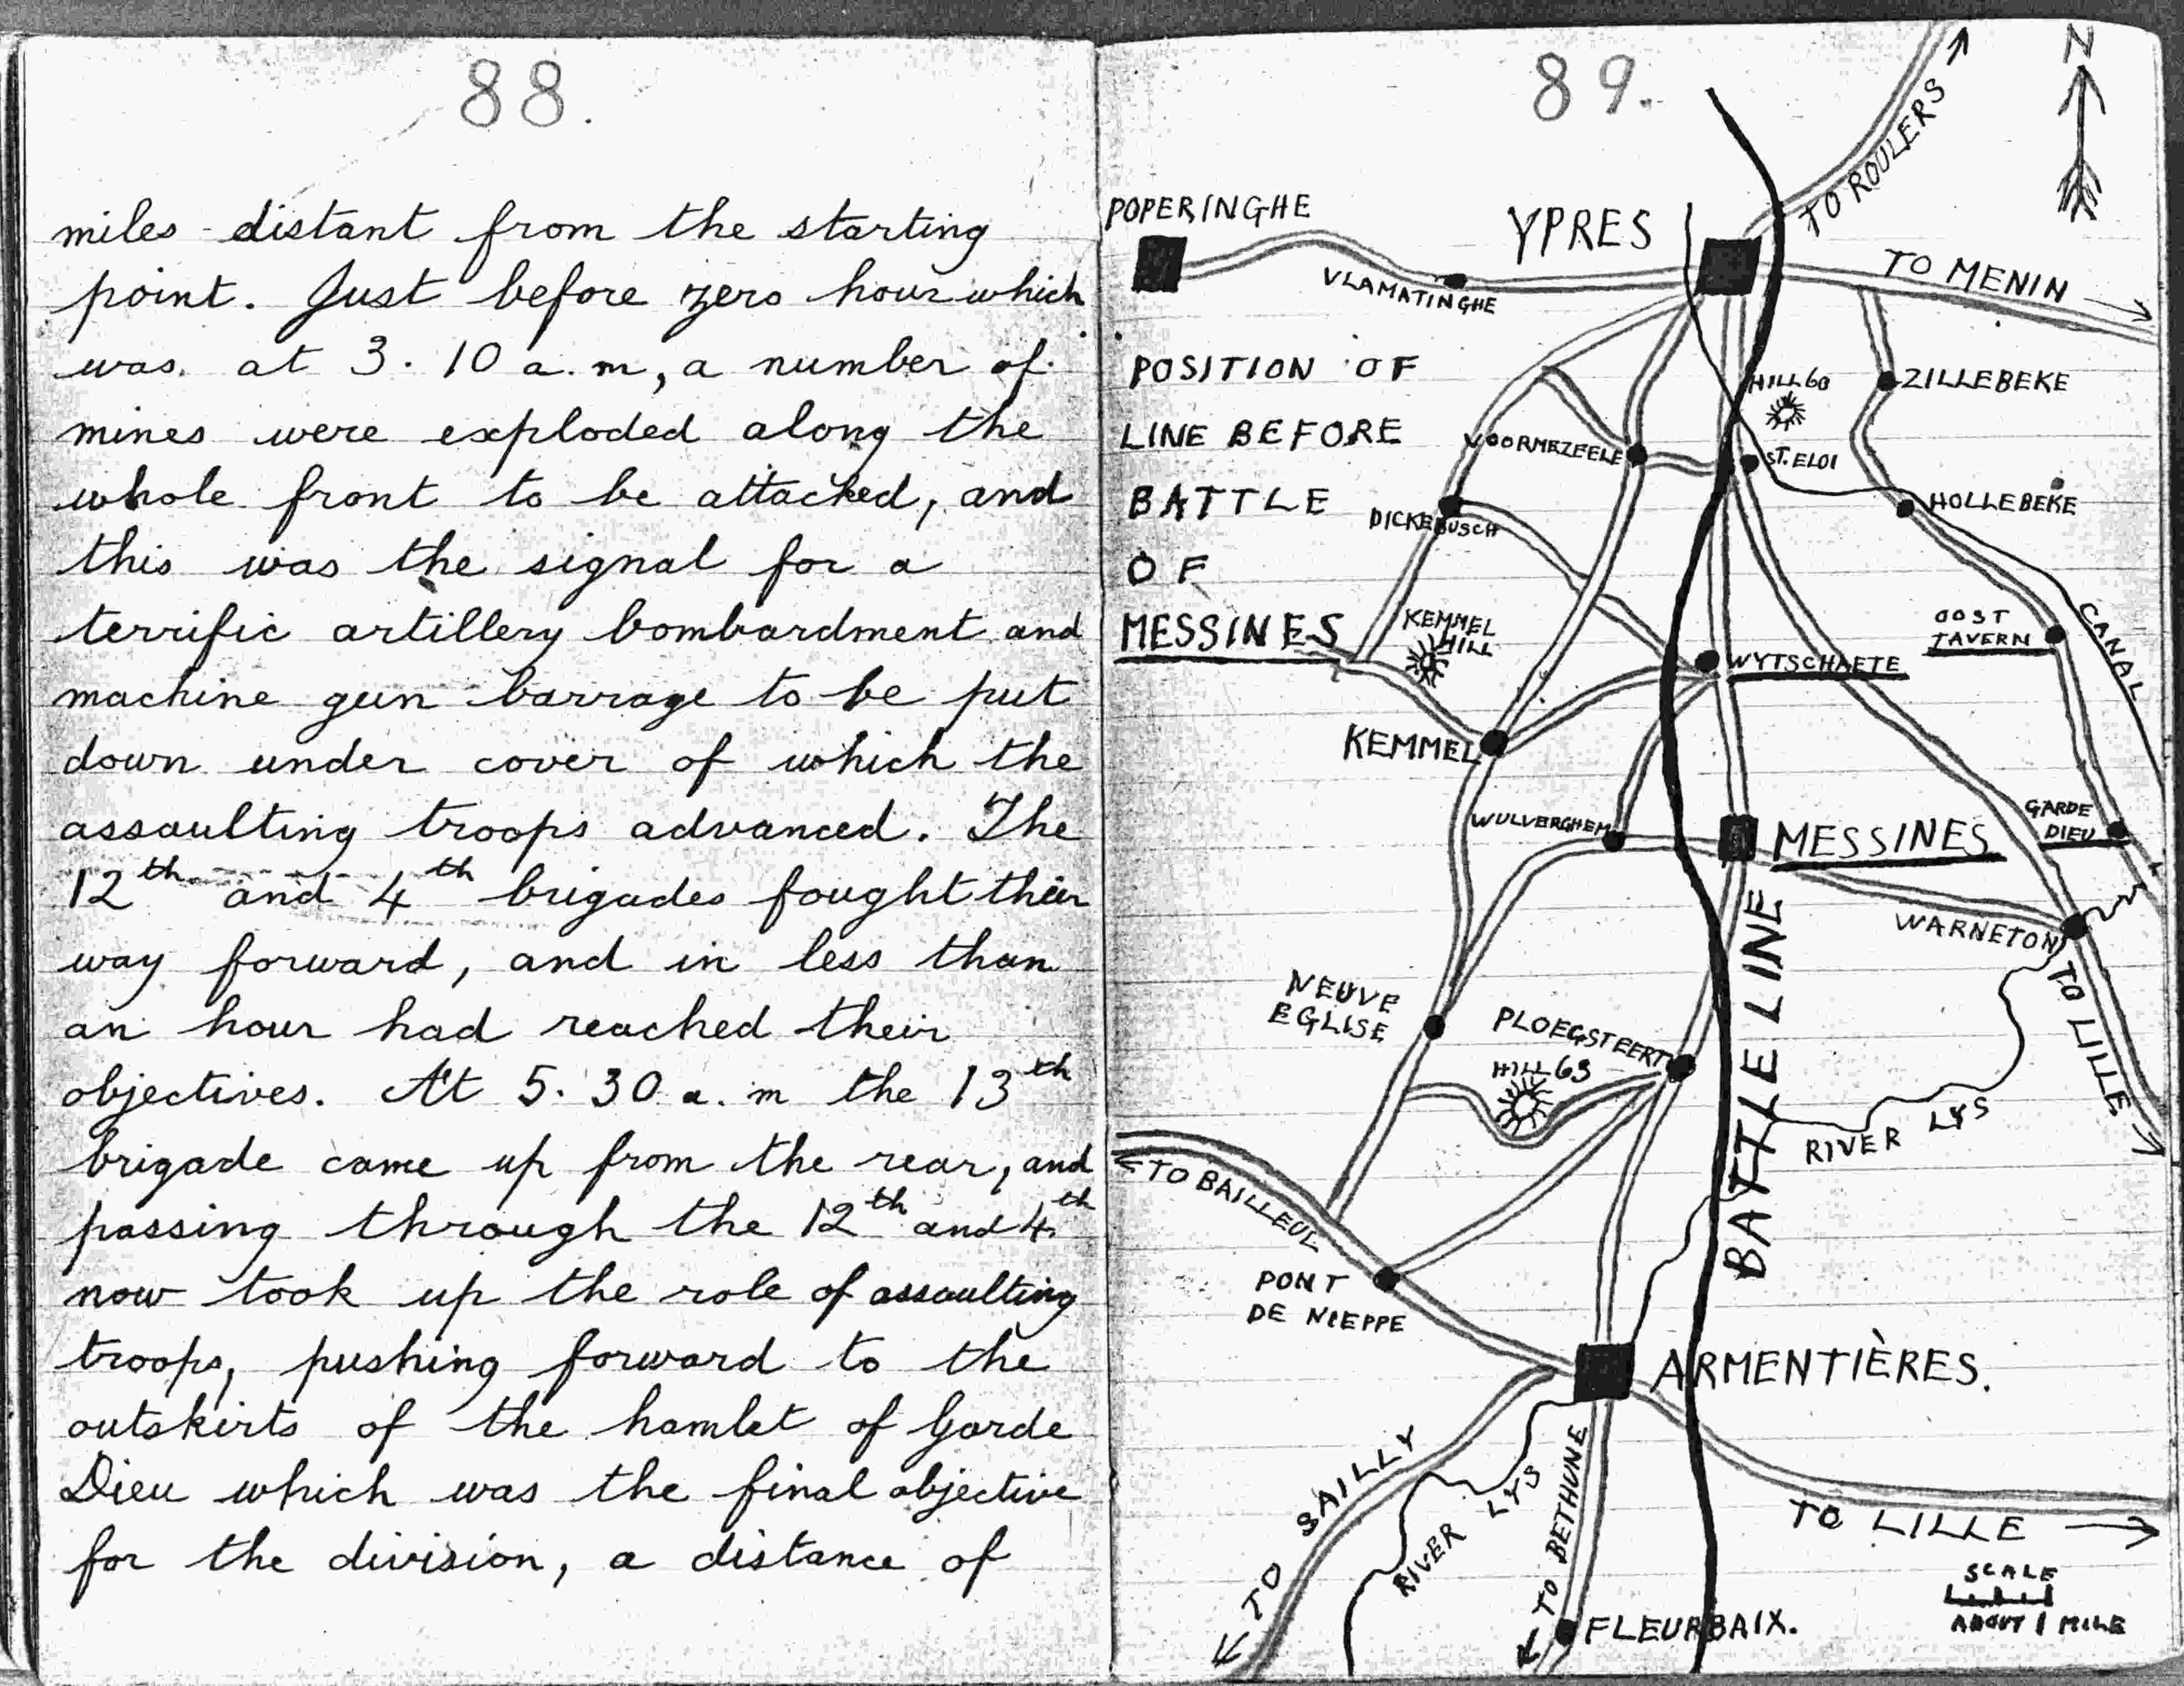 88.
miles distant from the starting
point. Just before zero hour which
was at 3.10 a.m, a number of
mines were exploded along the
whole front to be attacked, and
this was the signal for a
terrific artillery bombardment and
machine gun barrage to be put
down under cover of which the
assaulting troops advanced. The
12th and 4th brigades fought their
way forward, and in less than
an hour had reached their
objectives. At 5.30 a.m the 13th
brigade came up from the rear, and
passing through the 12th and 4th
now took up the role of assaulting
troops, pushing forward to the
outskirts of the hamlet of Garde
Dieu which was the final objective
for the division, a distance of
89.
N
TO ROULERS
POPERINGHE
YPRES
VLAMATINGHE
TO MENIN
POSITION OF
LINE BEFORE
BATTLE
OF
MESSINES
HILL 60
ZILLEBEKE
VOORMEZEELE
ST. ELOI
DICKEBUSCH
HOLLEBEKE
KEMMEL
HILL
OOST
TAVERN
CANAL
WYTSCHAETE
KEMMEL
WULVERGHEM
MESSINES
GARDE
DIEU
WARNETON
BATTLE LINE
NEUVE
EGLISE
PLOEGSTEERT
HILL 63
TO LILLE
RIVER LYS
TO BAILLEUL
PONT
DE NIEPPE
ARMENTIÈRES.
TO SAILLY
RIVER LYS
TO BETHUNE
TO LILLE
FLEURBAIX.
SCALE
ABOUT 1 MILE